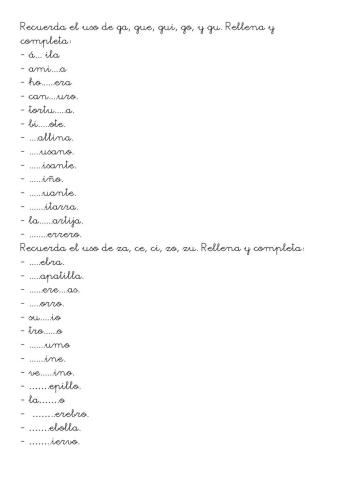 Recuerda el uso de ga, gue, gui, go, y gu. Rellena y
completa:
- á... ila
- ami....a
- ho......era
- can....uro.
- tortu.....a.
- bi.....ote.
- ....allina.
- .....usano.
- ......isante.
- ......iño.
- ......uante.
- .......itarra.
- la......artija.
- ........errero.
Recuerda el uso de za, ce, ci, zo, zu. Rellena y completa:
- .....ebra.
- .....apatilla.
- ......ere....as.
- .....orro.
- su.....io
- tro......o
- .......umo
- .......ine.
- ve......ino.
- .......epillo.
- la.......o
- ........erebro.
- .......ebolla.
- ........iervo.